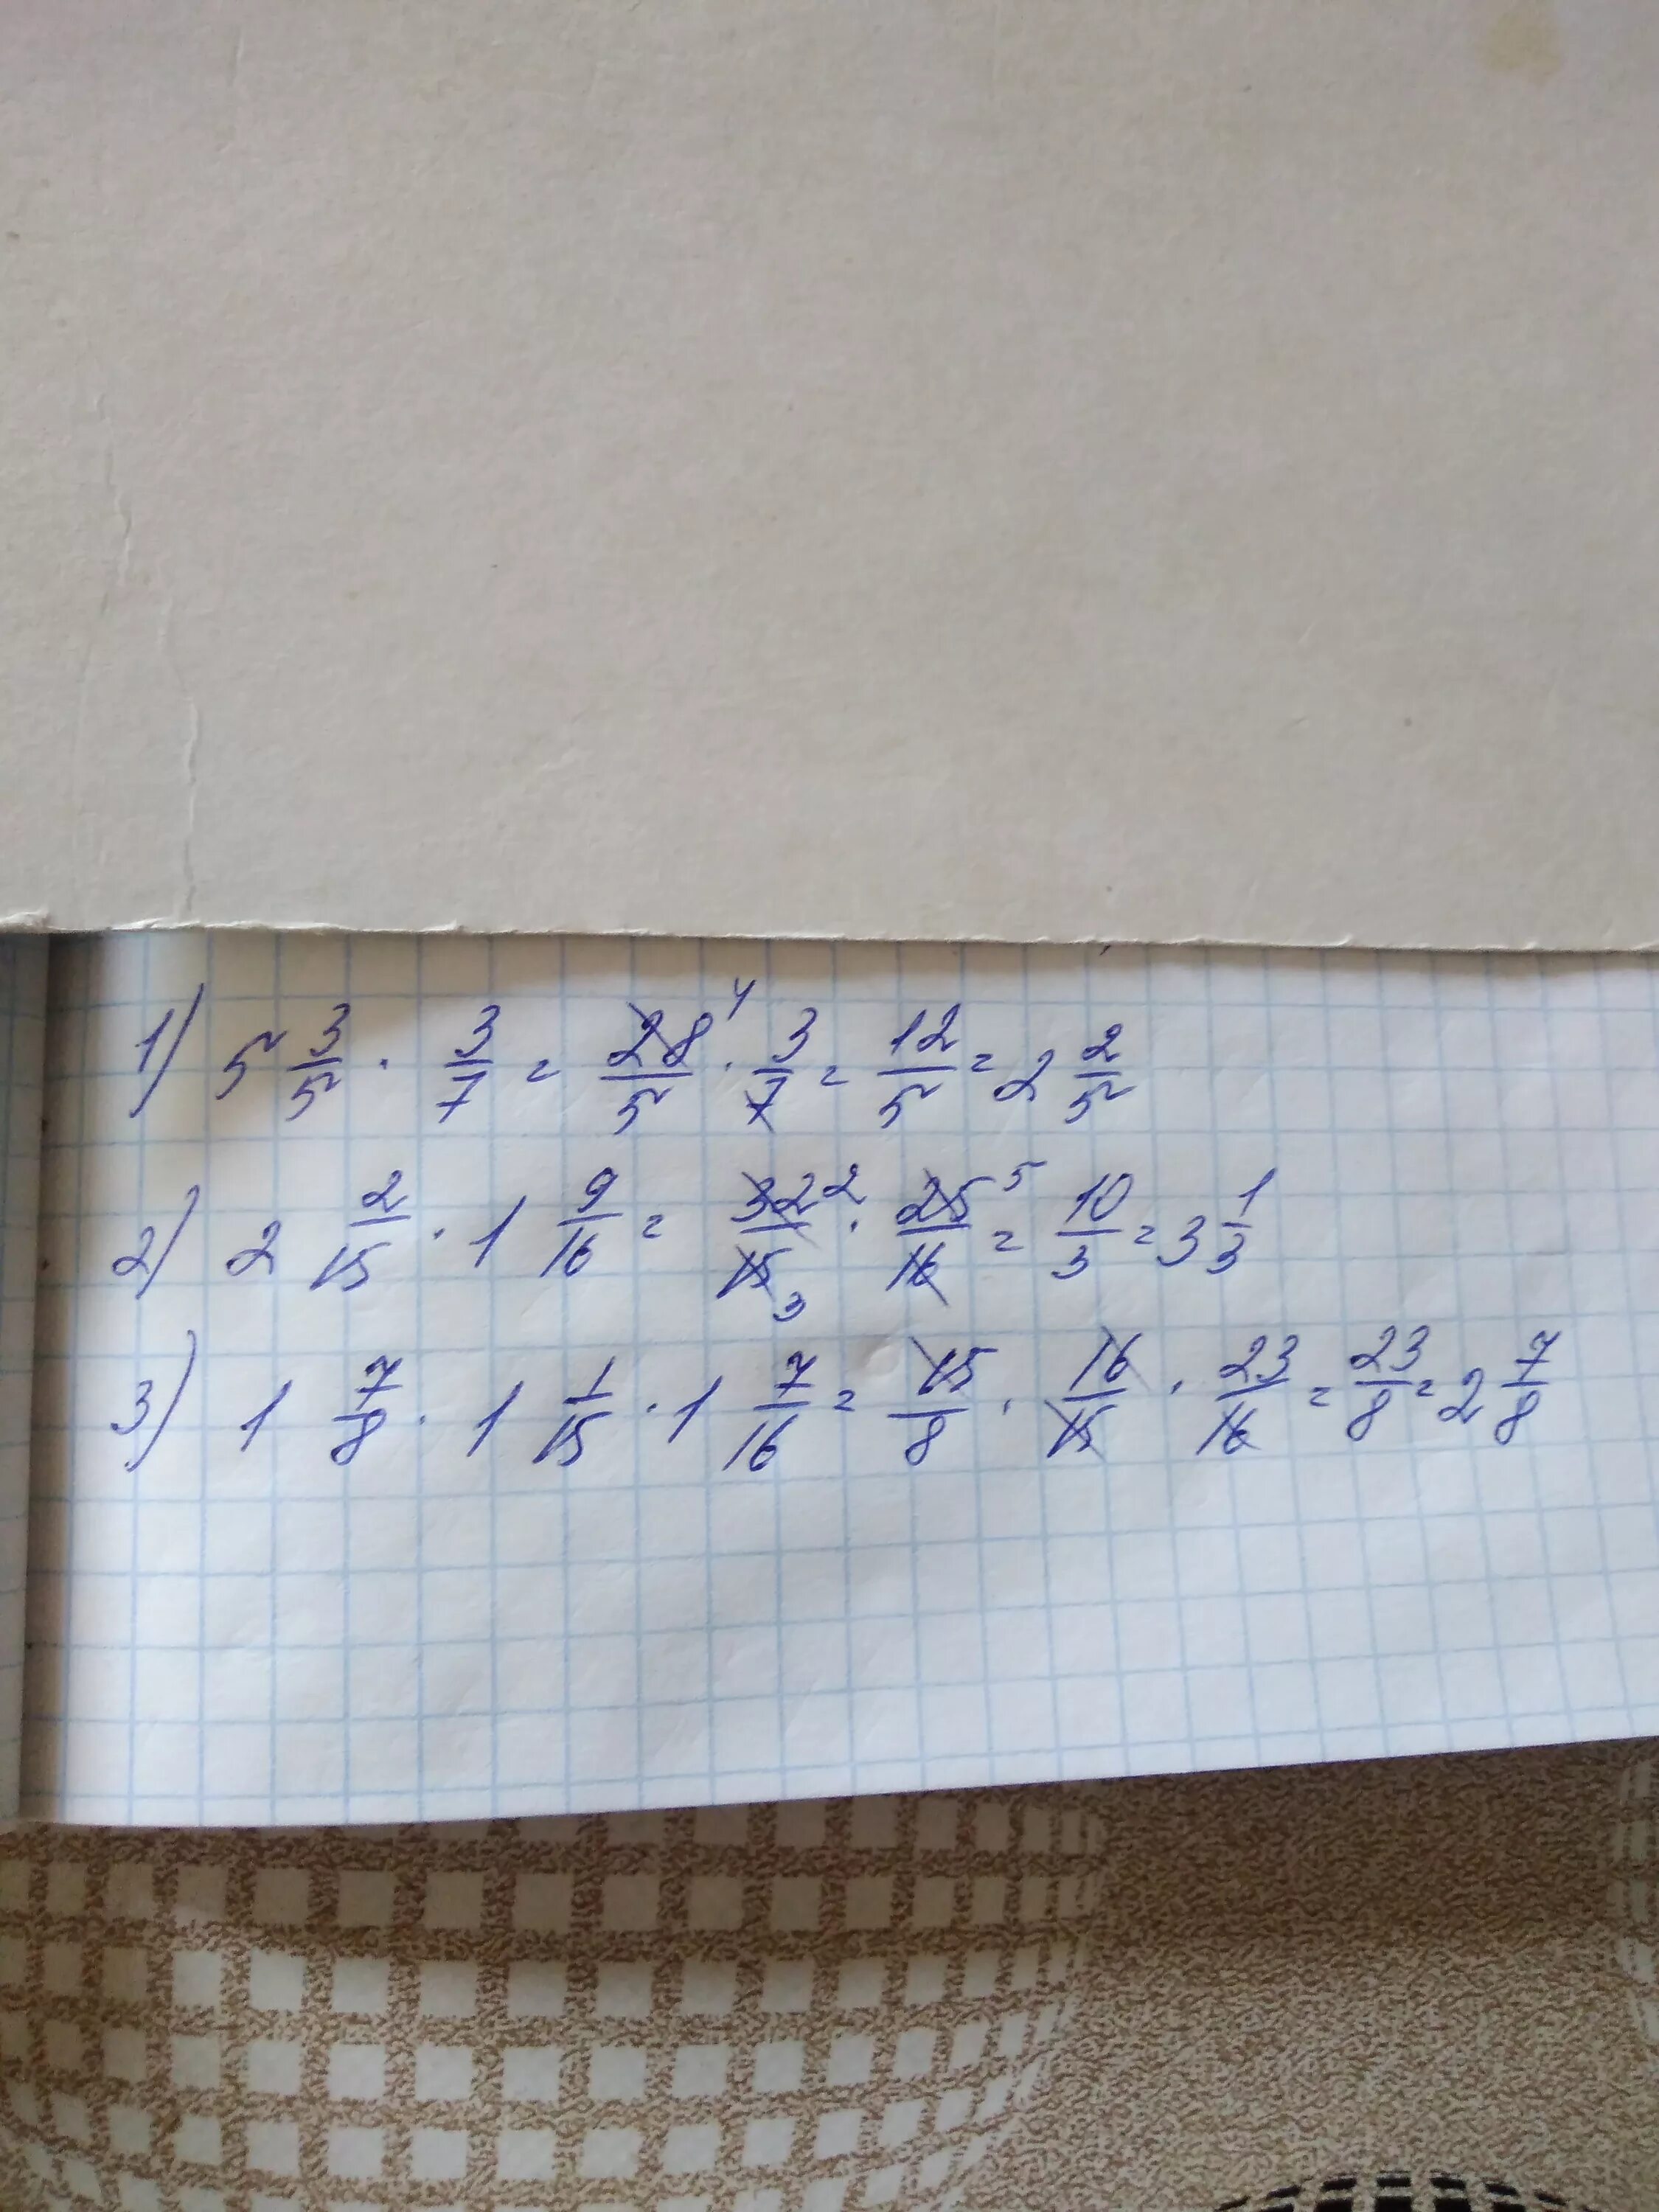 1) 5 3/5 · 3/7 = 28/5 4 · 3/7 = 12/5 = 2 2/5
2) 2 2/15 · 1 9/16 = 32/15 2 3 · 25/16 5 = 10/3 = 3 1/3
3) 1 7/8 · 1 1/15 · 1 7/16 = 15/8 · 16/15 · 23/16 = 23/8 = 2 7/8